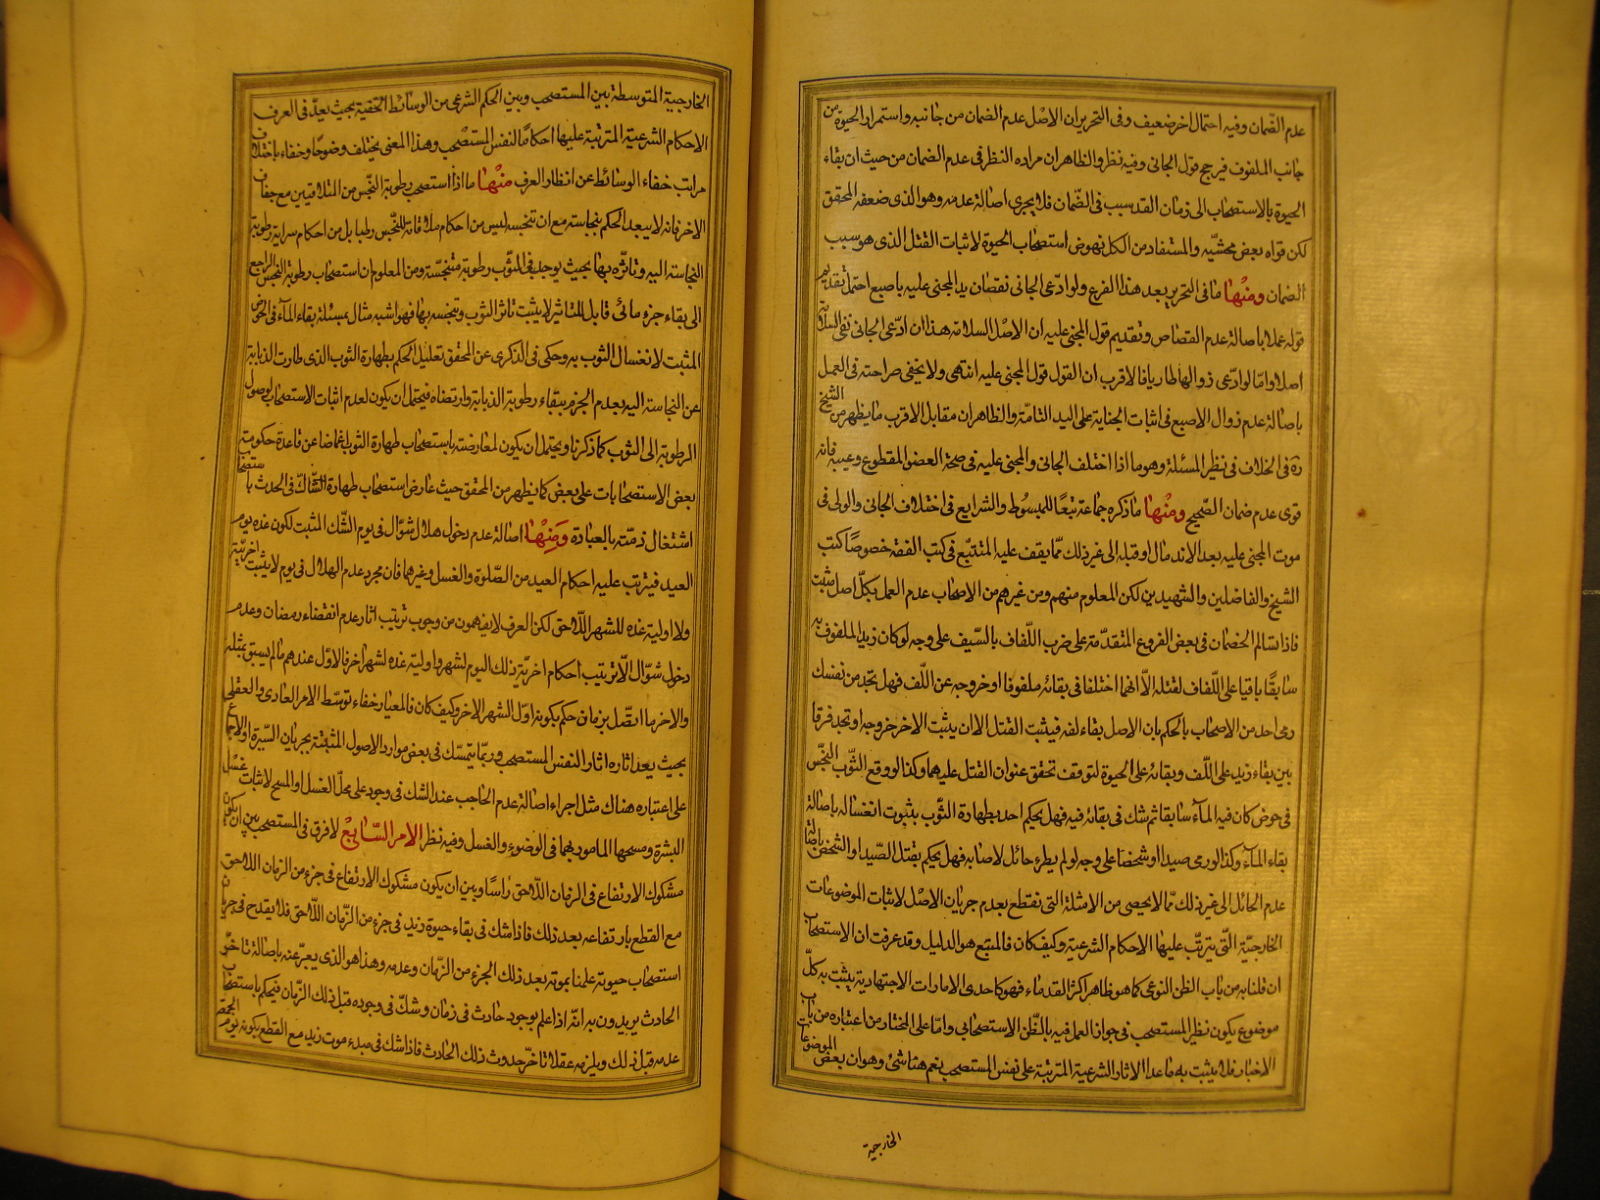 عدم الضمان وفيه احتمال اخر ضعيف وفى التحرير ان الاصل عدم الضمان من جانبه واستمرار الحيوة من
جانب الملفوف فيرجح قول الجانى وفيه نظر والظاهر ان مراده النظر فى عدم الضمان من حيث ان بقاء
الحيوة بالاستصحاب الى زمان القد سبب فى الضمان فلا يجرى اصالة عدمه وهو الذى ضعفه المحقق
لكن قواه بعض محشيه والمستفاد من الكل نهوض استصحاب الحيوة لاثبات القتل الذى هو سبب
الضمان ومنها ما فى التحرير بعد هذا الفرع ولو ادعى الجانى نقصان يد المجنى عليه باصبع احتمل تقديم
قوله عملا باصالة عدم القصاص وتقديم قول المجنى عليه ان الاصل السلامة هذا ان ادعى الجانى نفى السلامة
اصلا واما لو ادعى زوالها طاريا فالاقرب ان القول قول المجنى عليه انتهى ولا يخفى صراحته فى العمل
باصالة عدم زوال الاصبع فى اثبات الجناية على اليد التامة والظاهر ان مقابل الاقرب ما يظهر من الشيخ
ره فى الخلاف فى نظير المسئلة وهو ما اذا اختلف الجانى والمجنى عليه فى صحة العضو المقطوع وعيبه فانه
قوى عدم ضمان الصحيح ومنها ما ذكره جماعة تبعا للمبسوط والشرايع فى اختلاف الجانى والولى فى
موت المجنى عليه بعد الاندمال او قبله الى غير ذلك مما يقف عليه المتتبع فى كتب الفقه خصوصا كتب
الشيخ والفاضلين والشهيدين لكن المعلوم منهم ومن غيرهم من الاصحاب عدم العمل بكل اصل مثبت
فاذا تسالم الخصمان فى بعض الفروع المتقدمة على ضرب اللفاف بالسيف على وجه لو كان زيد الملفوف به
سابقا باقيا على اللفاف لقتله الا انهما اختلفا فى بقائه ملفوفا او خروجه عن اللف فهل تجد من نفسك
رمى احد من الاصحاب بالحكم بان الاصل بقاء لفه فيثبت القتل الا ان يثبت الاخر خروجه او تجد فرقا
بين بقاء زيد على اللف وبقائه على الحيوة لتوقف تحقق عنوان القتل عليهما وكذا لو وقع الثوب النجس
فى حوض كان فيه الماء سابقا ثم شك فى بقائه فيه فهل يحكم احد بطهارة الثوب بثبوت انغساله باصالة
بقاء الماء وكذا لو رمى صيدا او شخصا على وجه لو لم يطرء حائل لاصابه فهل يحكم بقتل الصيد او الشخص باصالة
عدم الحائل الى غير ذلك مما لا يحصى من الامثلة التى نقطع بعدم جريان الاصل لاثبات الموضوعات
الخارجية التى يترتب عليها الاحكام الشرعية وكيف كان فالمتبع هو الدليل وقد عرفت ان الاستصحاب
ان قلنا به من باب الظن النوعى كما هو ظاهر اكثر القدماء فهو كاحدى الامارات الاجتهادية يثبت به كل
موضوع يكون نظير المستصحب فى جواز العمل فيه بالظن الاستصحابى واما على المختار من اعتباره من باب
الاخبار فلا يثبت به ما عدا الاثار الشرعية المترتبة على نفس المستصحب نعم هنا شئ وهو ان بعض الموضوعات
الخارجية
الخارجية المتوسطة بين المستصحب وبين الحكم الشرعى من الوسائط الخفية بحيث يعد فى العرف
الاحكام الشرعية المترتبة عليها احكاما لنفس المستصحب وهذا المعنى يختلف وضوحا وخفاء باختلاف
مراتب خفاء الوسائط عن انظار العرف منها ما اذا استصحب رطوبة النجس من المتلاقيين مع جفاف
الاخر فانه لا يبعد الحكم بنجاسته مع ان تنجسه ليس من احكام ملاقاته للنجس رطبا بل من احكام سراية رطوبة
النجاسة اليه وتاثره بها بحيث يوجد فى الثوب رطوبة متنجسة ومن المعلوم ان استصحاب رطوبة النجس الراجع
الى بقاء جزء مائى قابل للتاثير لا يثبت تاثر الثوب وتنجسه بها فهو اشبه مثال بمسئلة بقاء الماء فى الحوض
المثبت لانغسال الثوب به وحكى فى الذكرى عن المحقق تعليل الحكم بطهارة الثوب الذى طارت الذبابة
عن النجاسة اليه بعدم الجزم ببقاء رطوبة الذبابة وارتضاه فيحتمل ان يكون لعدم اثبات الاستصحاب لوصول
الرطوبة الى الثوب كما ذكرنا ويحتمل ان يكون لمعارضته باستصحاب طهارة الثوب اغماضا عن قاعدة حكومة
بعض الاستصحابات على بعض كما يظهر من المحقق حيث عارض استصحاب طهارة الشاك فى الحدث باستصحاب
اشتغال ذمته بالعبادة ومنها اصالة عدم دخول هلال شوال فى يوم الشك المثبت لكون غده يوم
العيد فيترتب عليه احكام العيد من الصلوة والغسل وغيرهما فان مجرد عدم الهلال فى يوم لا يثبت اخريته
ولا اولية غده للشهر اللاحق لكن العرف لا يفهمون من وجوب ترتيب اثار عدم انقضاء رمضان وعدم
دخول شوال الا ترتيب احكام اخرية ذلك اليوم لشهر واولية غده لشهر اخر فالاول عندهم ما لم يسبق بمثله
والاخر ما اتصل بزمان حكم بكونه اول الشهر الاخر وكيف كان فالمعيار خفاء توسط الامر العادى والعقلى
بحيث يعد اثاره اثار النفس المستصحب وربما يتمسك فى بعض موارد الاصول المثبتة بجريان السيرة او الاجماع
على اعتباره هناك مثل اجراء اصالة عدم الحاجب عند الشك فى وجوده على محل الغسل والمسح لاثبات غسل
البشرة ومسحها المامور بهما فى الوضوء والغسل وفيه نظر الامر السابع لا فرق فى المستصحب بين ان يكون
مشكوك الارتفاع فى الزمان اللاحق راسا وبين ان يكون مشكوك الارتفاع فى جزء من الزمان اللاحق
مع القطع بارتفاعه بعد ذلك فاذا شك فى بقاء حيوة زيد فى جزء من الزمان اللاحق فلا يقدح فى جريان
استصحاب حيوته علمنا بموته بعد ذلك الجزء من الزمان وعدمه وهذا هو الذى يعبر عنه باصالة تاخر
الحادث يريدون به انه اذا علم بوجود حادث فى زمان وشك فى وجوده قبل ذلك الزمان فيحكم باستصحاب
عدمه قبل ذلك ويلزمه عقلا تاخر حدوث ذلك الحادث فاذا شك فى مبدء موت زيد مع القطع بكونه يوم الجمعة